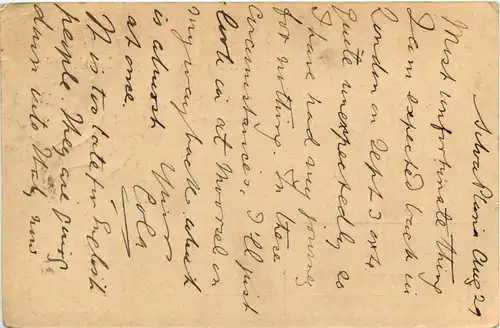 Silvaplana Aug 29
Most unfortunate thing
I am expected back in
London on Sept 3 or 4
quite unexpectedly so
I have had my journey
for nothing. In these
circumstances, I'll just
look in at Moorsel on
my way back which
is almost
at once.
Yours
Cola
It is too late for English
people. They are going
down into Italy now